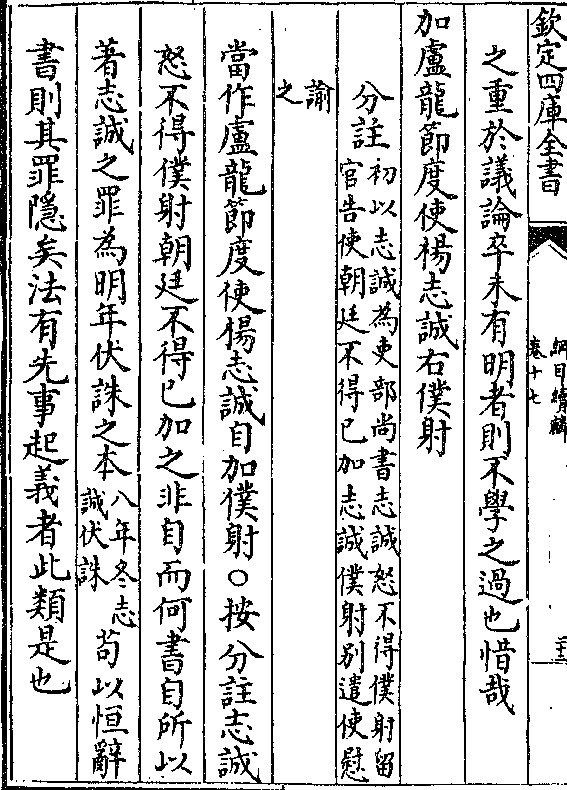 欽定四庫全書
綱目續麟
卷十七
二十三
之重於議論卒未有明者則不學之過也惜哉
加盧龍節度使楊志誠右僕射
分註初以志誠為吏部尚書志誠怒不得僕射留
官告使朝廷不得已加志誠僕射别遣使慰
諭
之
當作盧龍節度使楊志誠自加僕射○按分註志誠
怒不得僕射朝廷不得已加之非自而何書自所以
著志誠之罪為明年伏誅之本八年冬志
誠伏誅
苟以恒辭
書則其罪隱矣法有先事起義者此類是也